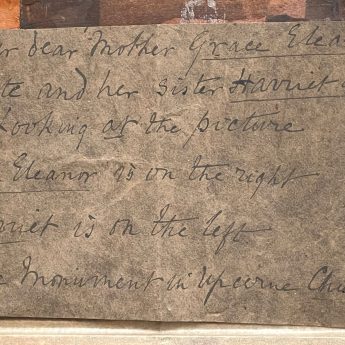 dear Mother Grace Elea
te and her sister Harriet
Looking at the picture
Eleanor is on the right
riet is on the left
e Monument in Upcerne Chu